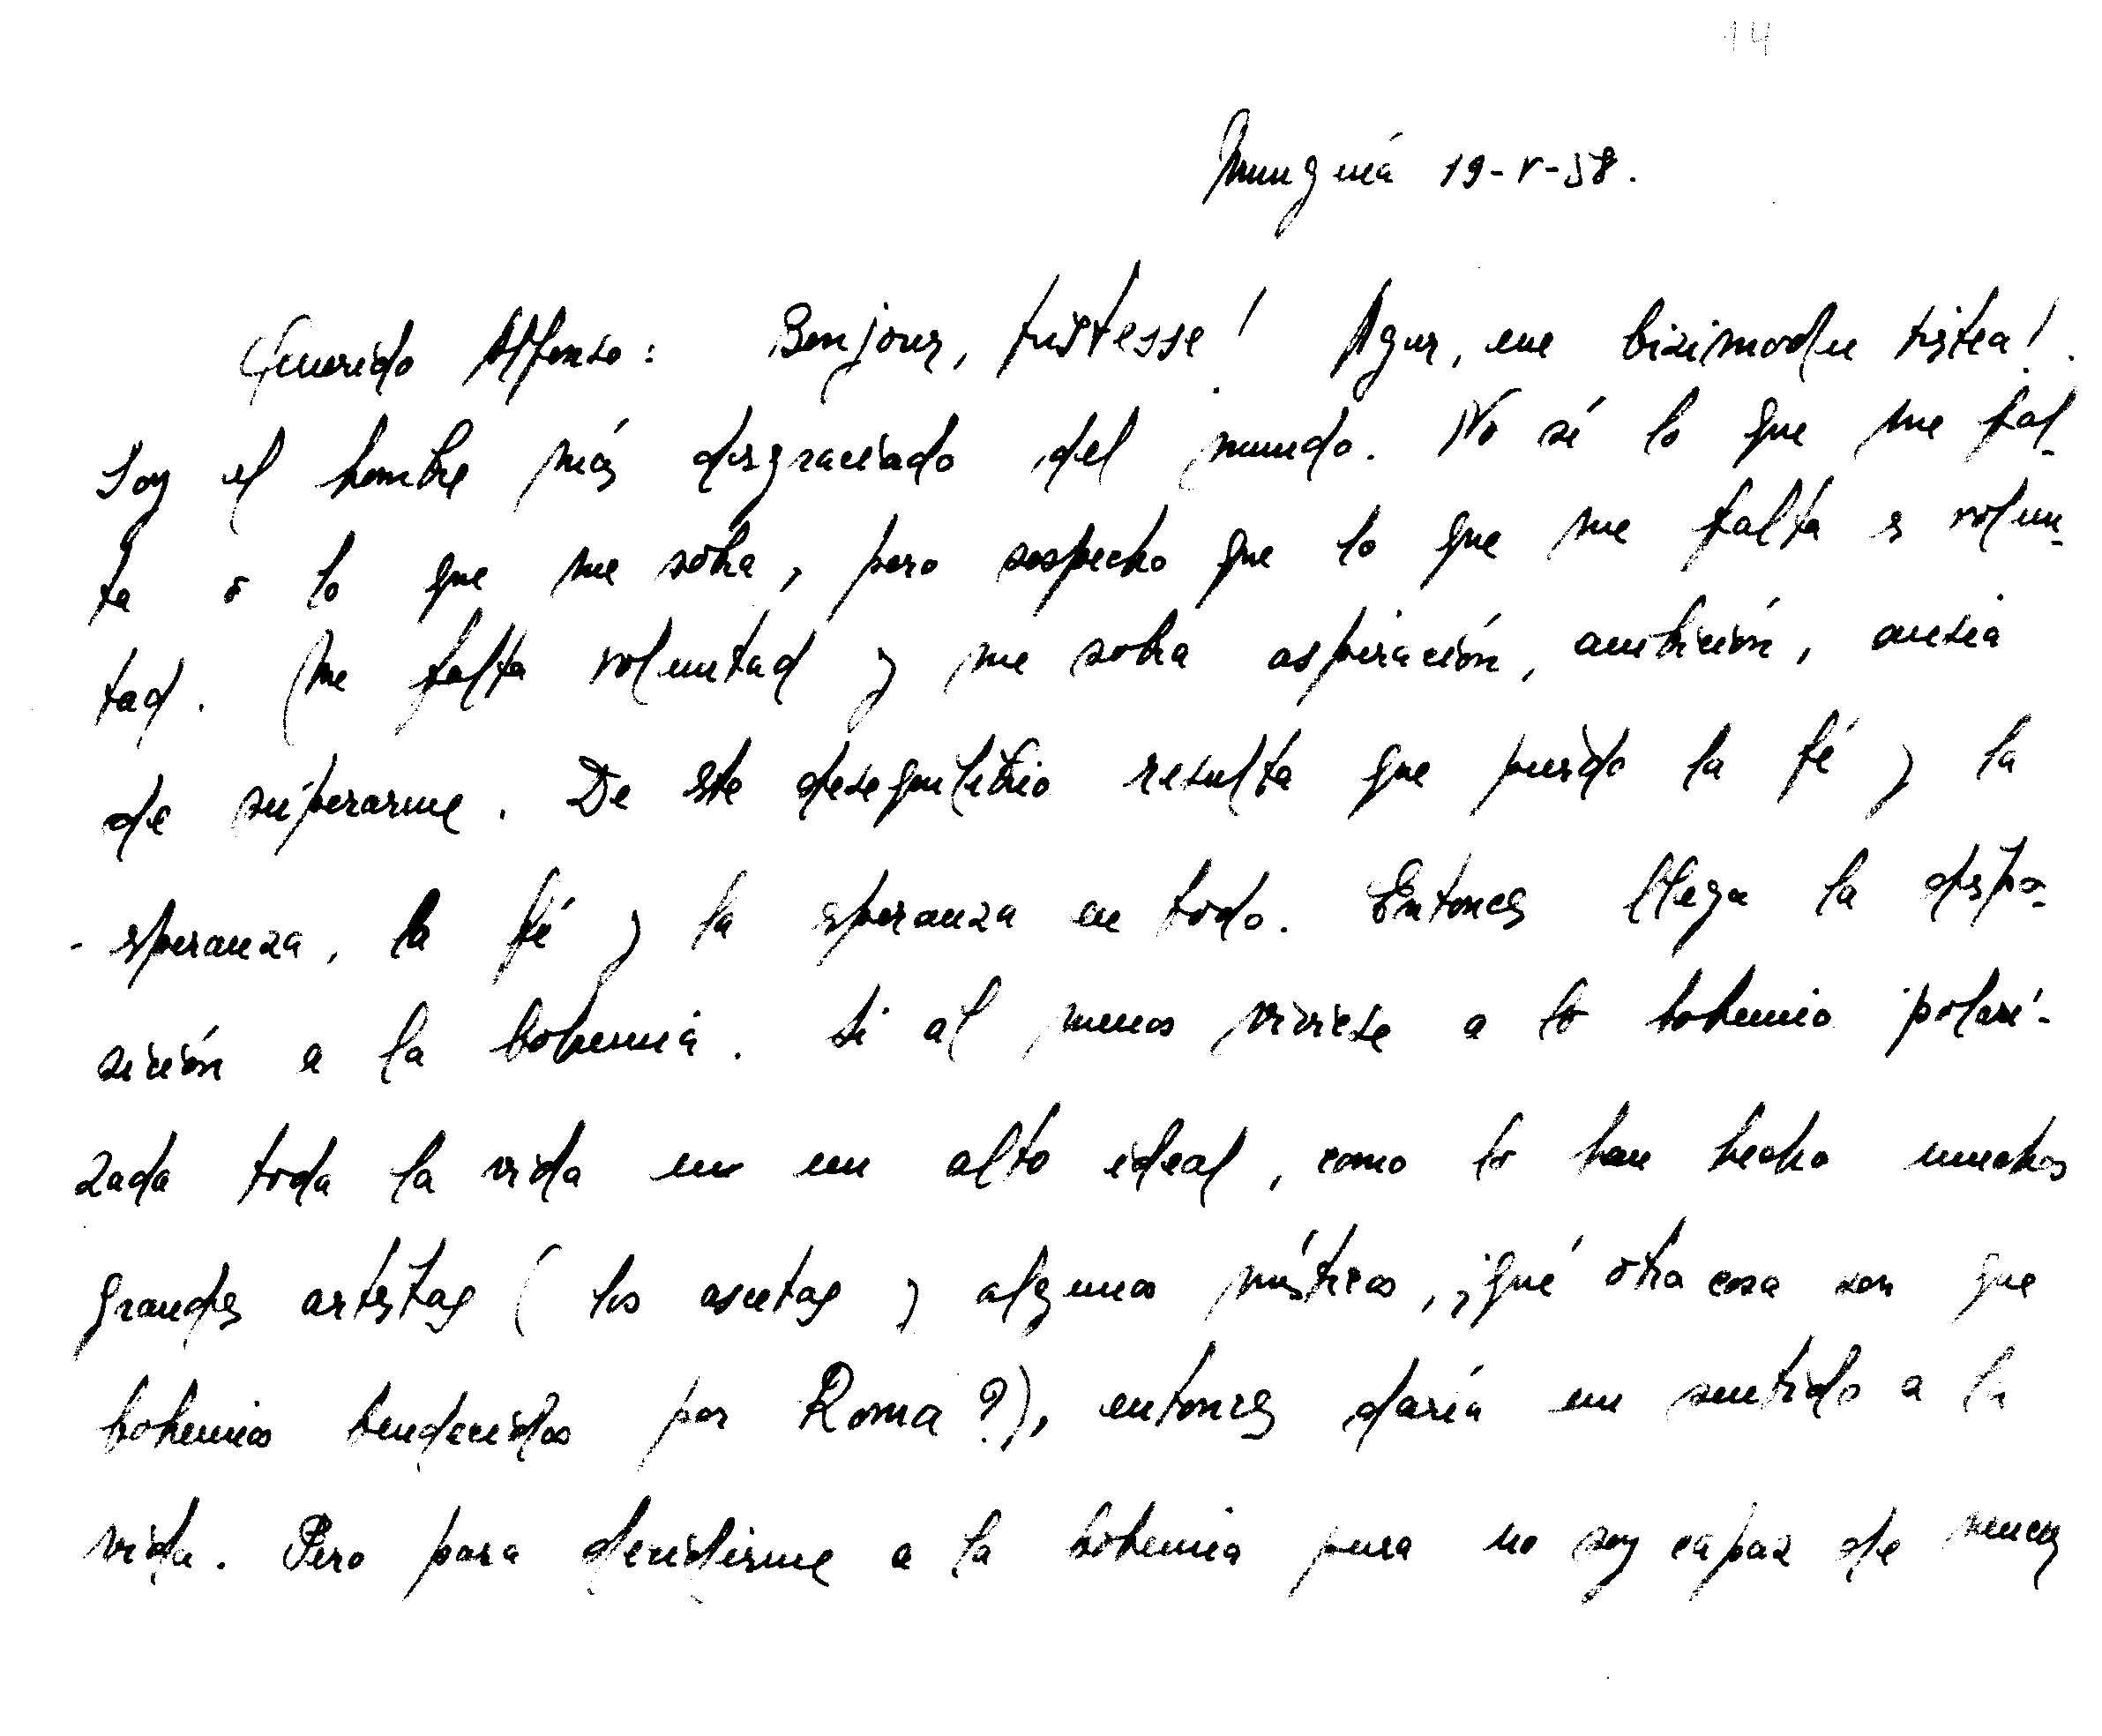 14
Munguía 19-V-58.
Querido Alfonso: Bonjour, tristesse! Agur, ene bizimodu tristea!
Soy el hombre más desgraciado del mundo. No sé lo que me fal-
ta o lo que me sobra, pero sospecho que lo que me falta es volun-
tad. Me falta voluntad y me sobra aspiración, ambición, ansia
de superarme. De este desequilibrio resulta que pierdo la fé y la
esperanza, la fé y la esperanza en todo. Entonces llega la dispo-
sición a la bohemia. Si al menos viviese a lo bohemio polari-
zada toda la vida en un alto ideal, como lo han hecho muchos
grandes artistas (los ascetas y algunos místicos, ¿qué otra cosa son que
bohemios bendecidos por Roma?), entonces daría un sentido a la
vida. Pero para decidirme a la bohemia pura no soy capaz de vencer